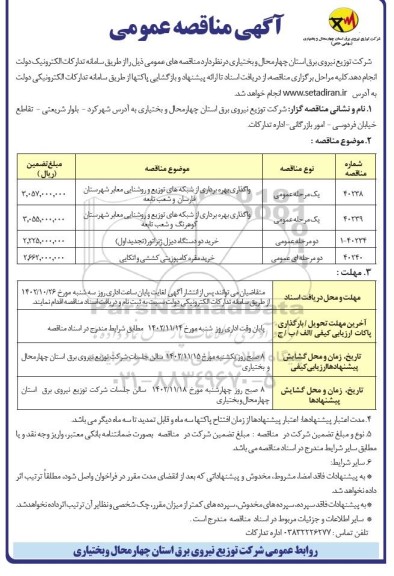 آگهی مناقصه عمومی
شرکت توزیع نیروی برق استان چهارمحال و بختیاری
(سهامی خاص)
شرکت توزیع نیروی برق استان چهارمحال و بختیاری در نظر دارد مناقصه های عمومی ذیل را از طریق سامانه تدارکات الکترونیک دولت
انجام دهد. کلیه مراحل برگزاری مناقصه، از دریافت اسناد تا ارائه پیشنهاد و بازگشایی پاکتها از طریق سامانه تدارکات الکترونیکی دولت
به آدرس www.setadiran.ir انجام خواهد شد.
۱. نام و نشانی مناقصه گزار: شرکت توزیع نیروی برق استان چهارمحال و بختیاری به آدرس شهرکرد - بلوار شریعتی - تقاطع
خیابان فردوسی - امور بازرگانی- اداره تدارکات.
۲. موضوع مناقصه :
شماره مناقصه | نوع مناقصه | موضوع مناقصه | مبلغ تضمین (ریال)
۴۰۲۳۸ | یک مرحله عمومی | واگذاری بهره برداری از شبکه های توزیع و روشنایی معابر شهرستان فارسان و شعب تابعه | ۳,۰۵۷,۰۰۰,۰۰۰
۴۰۲۳۹ | یک مرحله عمومی | واگذاری بهره برداری از شبکه های توزیع و روشنایی معابر شهرستان کوهرنگ و شعب تابعه | ۳,۰۵۵,۰۰۰,۰۰۰
۱-۴۰۲۳۴ | دو مرحله عمومی | خرید دو دستگاه دیزل ژنراتور (تجدید اول) | ۲,۲۲۵,۰۰۰,۰۰۰
۴۰۲۴۰ | دو مرحله ای عمومی | خرید مقره کامپوزیتی کششی و اتکایی | ۲,۶۶۲,۰۰۰,۰۰۰
۳. مهلت :
مهلت و محل دریافت اسناد | متقاضیان می توانند پس از انتشار آگهی لغایت پایان ساعت اداری روز سه شنبه مورخ ۱۴۰۲/۱۰/۲۶ از طریق سامانه تدارکات الکترونیکی دولت نسبت به ثبت نام و دریافت اسناد مناقصه اقدام نمایند.
آخرین مهلت تحویل / بارگذاری پاکات ارزیابی کیفی / الف / ب / ج | پایان وقت اداری روز شنبه مورخ ۱۴۰۲/۱۱/۱۴ مطابق شرایط مندرج در اسناد مناقصه
تاریخ، زمان و محل گشایش پیشنهادها ارزیابی کیفی | ۸ صبح روز یکشنبه مورخ ۱۴۰۲/۱۱/۱۵ سالن جلسات شرکت توزیع نیروی برق استان چهارمحال و بختیاری
تاریخ، زمان و محل گشایش پیشنهادها | ۸ صبح روز چهارشنبه مورخ ۱۴۰۲/۱۱/۱۸ سالن جلسات شرکت توزیع نیروی برق استان چهارمحال و بختیاری
۴. مدت اعتبار پیشنهادها: اعتبار پیشنهادها از زمان افتتاح پاکتها سه ماه و قابل تمدید تا سه ماه دیگر می باشد.
۵. نوع و مبلغ تضمین شرکت در مناقصه : مبلغ تضمین شرکت در مناقصه بصورت ضمانتنامه بانکی معتبر، واریز وجه نقد و یا
مطابق سایر شرایط مندرج در اسناد مناقصه می باشد.
۶. سایر شرایط:
* به پیشنهادات فاقد امضا، مشروط، مخدوش و پیشنهاداتی که بعد از انقضای مدت مقرر در فراخوان واصل شود، مطلقاً ترتیب اثر
داده نخواهد شد.
* به پیشنهادات فاقد سپرده، سپرده های مخدوش، سپرده های کمتر از میزان مقرر، چک شخصی و نظایر آن ترتیب اثر داده نخواهد شد.
* سایر اطلاعات و جزئیات مربوط در اسناد مناقصه مندرج است.
تلفن تماس : ۰۳۸۳۲۲۲۶۲۷۷ اداره تدارکات
روابط عمومی شرکت توزیع نیروی برق استان چهارمحال وبختیاری
ParsNamadData
۰۲۱-۸۸۳۴۹۶۷۰-۵